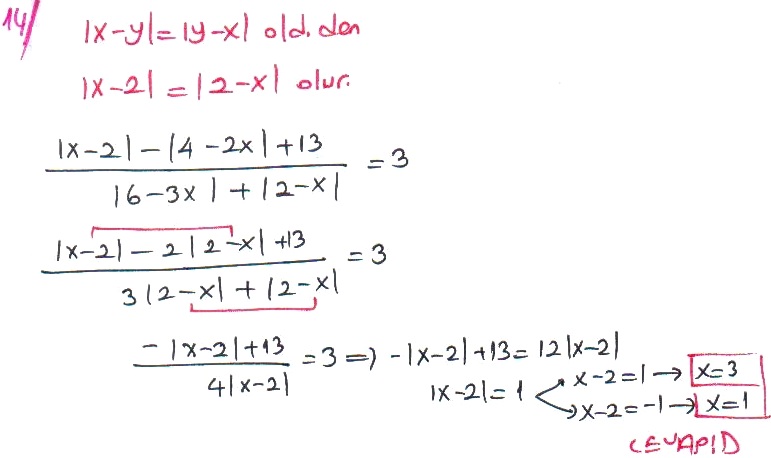 14/ |x-y|=|y-x| old. den
|x-2|=|2-x| olur.
|x-2|-|4-2x|+13
|6-3x|+|2-x|
=3
|x-2|-2|2-x|+13
3|2-x|+|2-x|
=3
-|x-2|+13
4|x-2|
=3=> -|x-2|+13=12|x-2|
|x-2|=1
x-2=1→ x=3
x-2=-1→ x=1
CEVAP D